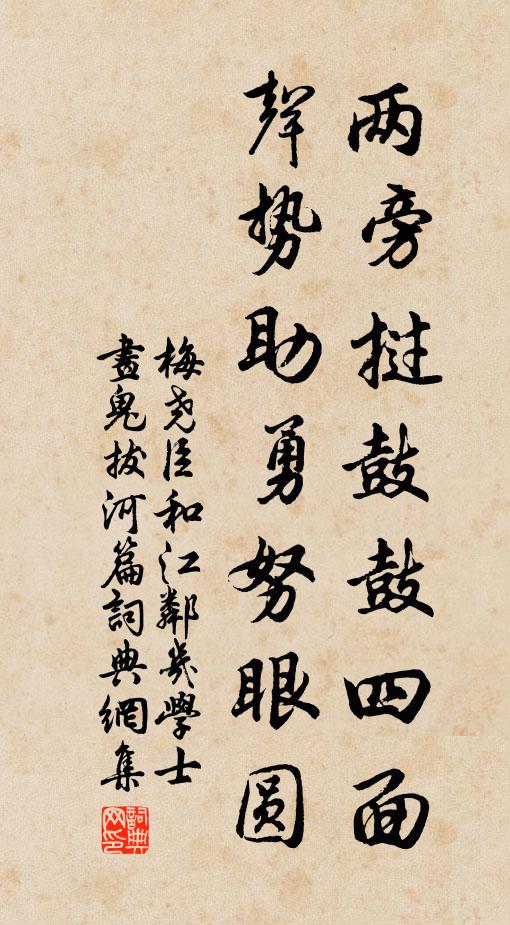 两旁挝鼓鼓四面
声势助勇努眼圆
梅尧臣和江邻几学士
画鬼拔河篇词典网集
词典网印